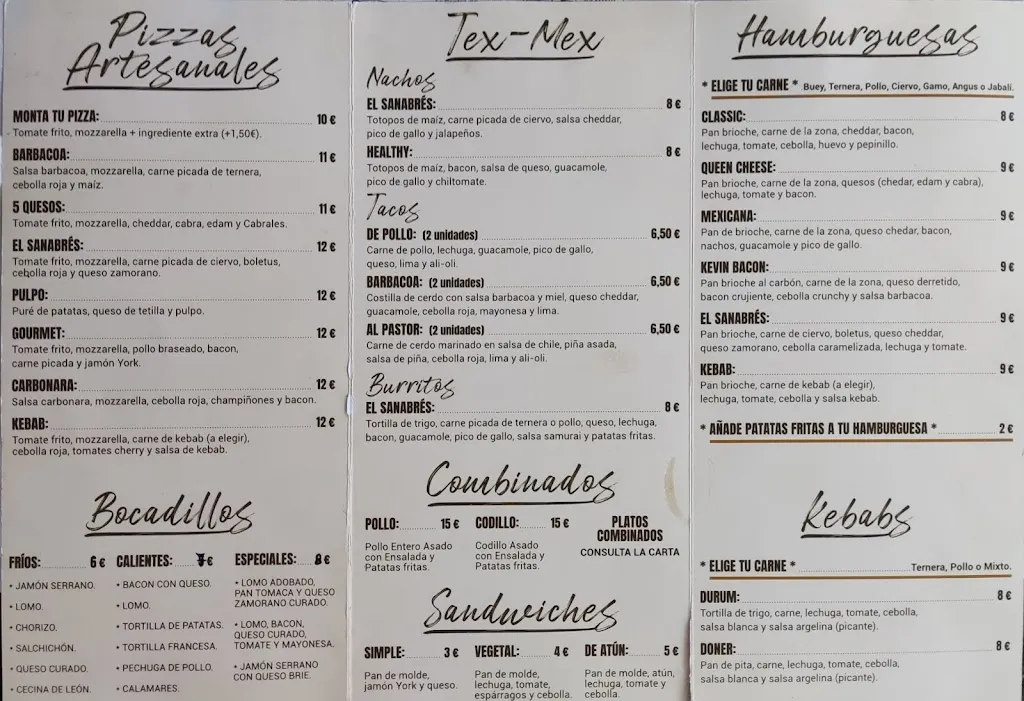 Pizzas
Artesanales
MONTA TU PIZZA: 10 €
Tomate frito, mozzarella + ingrediente extra (+1,50€).
BARBACOA: 11 €
Salsa barbacoa, mozzarella, carne picada de ternera,
cebolla roja y maíz.
5 QUESOS: 11 €
Tomate frito, mozzarella, cheddar, cabra, edam y Cabrales.
EL SANABRÉS: 12 €
Tomate frito, mozzarella, carne picada de ciervo, boletus,
cebolla roja y queso zamorano.
PULPO: 12 €
Puré de patatas, queso de tetilla y pulpo.
GOURMET: 12 €
Tomate frito, mozzarella, pollo braseado, bacon,
carne picada y jamón York.
CARBONARA: 12 €
Salsa carbonara, mozzarella, cebolla roja, champiñones y bacon.
KEBAB: 12 €
Tomate frito, mozzarella, carne de kebab (a elegir),
cebolla roja, tomates cherry y salsa de kebab.
Bocadillos
FRÍOS: 6 €
• JAMÓN SERRANO.
• LOMO.
• CHORIZO.
• SALCHICHÓN.
• QUESO CURADO.
• CECINA DE LEÓN.
CALIENTES: 7 €
• BACON CON QUESO.
• LOMO.
• TORTILLA DE PATATAS.
• TORTILLA FRANCESA.
• PECHUGA DE POLLO.
• CALAMARES.
ESPECIALES: 8 €
• LOMO ADOBADO,
PAN TOMACA Y QUESO
ZAMORANO CURADO.
• LOMO, BACON,
QUESO CURADO,
TOMATE Y MAYONESA.
• JAMÓN SERRANO
CON QUESO BRIE.
Tex-Mex
Nachos
EL SANABRÉS: 8 €
Totopos de maíz, carne picada de ciervo, salsa cheddar,
pico de gallo y jalapeños.
HEALTHY: 8 €
Totopos de maíz, bacon, salsa de queso, guacamole,
pico de gallo y chiltomate.
Tacos
DE POLLO: (2 unidades) 6,50 €
Carne de pollo, lechuga, guacamole, pico de gallo,
queso, lima y ali-oli.
BARBACOA: (2 unidades) 6,50 €
Costilla de cerdo con salsa barbacoa y miel, queso cheddar,
guacamole, cebolla roja, mayonesa y lima.
AL PASTOR: (2 unidades) 6,50 €
Carne de cerdo marinado en salsa de chile, piña asada,
salsa de piña, cebolla roja, lima y ali-oli.
Burritos
EL SANABRÉS: 8 €
Tortilla de trigo, carne picada de ternera o pollo, queso, lechuga,
bacon, guacamole, pico de gallo, salsa samurai y patatas fritas.
Combinados
POLLO: 15 €
Pollo Entero Asado
con Ensalada y
Patatas fritas.
CODILLO: 15 €
Codillo Asado
con Ensalada y
Patatas fritas.
PLATOS
COMBINADOS
CONSULTA LA CARTA
Sandwiches
SIMPLE: 3 €
Pan de molde,
jamón York y queso.
VEGETAL: 4 €
Pan de molde,
lechuga, tomate,
espárragos y cebolla.
DE ATÚN: 5 €
Pan de molde, atún,
lechuga, tomate y
cebolla.
Hamburguesas
* ELIGE TU CARNE * Buey, Ternera, Pollo, Ciervo, Gamo, Angus o Jabalí.
CLASSIC: 8 €
Pan brioche, carne de la zona, cheddar, bacon,
lechuga, tomate, cebolla, huevo y pepinillo.
QUEEN CHEESE: 9 €
Pan brioche, carne de la zona, quesos (chedar, edam y cabra),
lechuga, tomate y bacon.
MEXICANA: 9 €
Pan de brioche, carne de la zona, queso chedar, bacon,
nachos, guacamole y pico de gallo.
KEVIN BACON: 9 €
Pan brioche al carbón, carne de la zona, queso derretido,
bacon crujiente, cebolla crunchy y salsa barbacoa.
EL SANABRÉS: 9 €
Pan brioche, carne de ciervo, boletus, queso cheddar,
queso zamorano, cebolla caramelizada, lechuga y tomate.
KEBAB: 9 €
Pan brioche, carne de kebab (a elegir),
lechuga, tomate, cebolla y salsa kebab.
* AÑADE PATATAS FRITAS A TU HAMBURGUESA * 2 €
Kebabs
* ELIGE TU CARNE * Ternera, Pollo o Mixto.
DURUM: 8 €
Tortilla de trigo, carne, lechuga, tomate, cebolla,
salsa blanca y salsa argelina (picante).
DONER: 8 €
Pan de pita, carne, lechuga, tomate, cebolla,
salsa blanca y salsa argelina (picante).